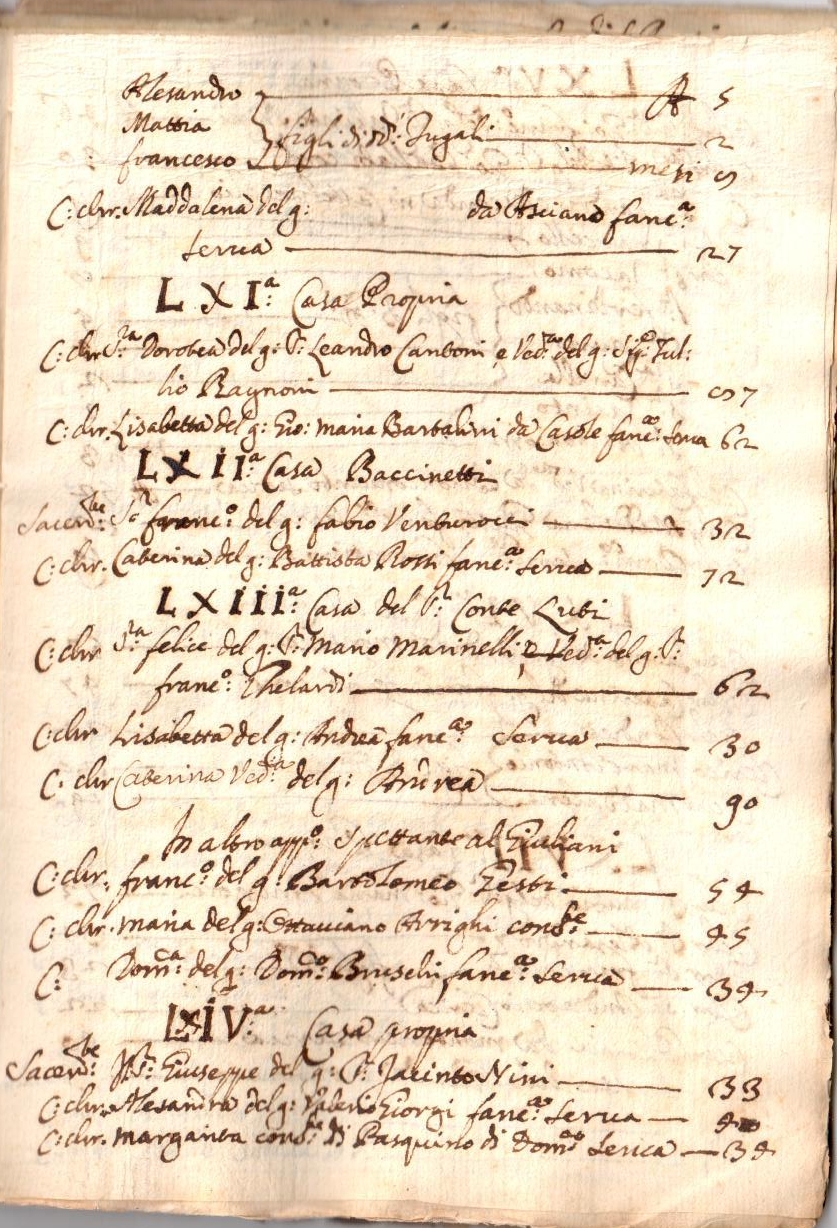 Alesandro A 5
Mattia figli di dd: Jugali 2
francesco mesi 9
C: chr: Maddalena del g: da Asciano fanc.a
serva 27
LXI.a Casa Propria
C: chr S.ra Dorotea del g: S: Leandro Cantoni e Ved.a del g: Sig.r Tul:
lio Ragnoni 57
C: chr. Lisabetta del g: Gio: maria Bartalini da Casole fanc.a: serva 62
LXII.a Casa Baccinetti
Sacerd.te: S.r franc.o del g: fabio Venturocci 32
C: chr. Caterina del g: Battista Rossi fanc.a serva 72
LXIII.a Casa del S.r Conte Luti
C: chr S.ra felice del g: S: Mario Marinelli, e Ved.a del g: S:
franc.o: Thelardi 62
C: chr Lisabetta del g: Andrea fanc.a Serva 30
C. chr Caterina Ved.a del g: Andrea 90
In altro app.o: spettante al Giuliani
C: chr. franc.o: del g: Bartolomeo Testi 54
C: chr. maria del g: Ottaviano Arrighi cons.te 45
C: Dom.ca: del g: Dom.co Bruschi fanc.a: Serva 34
LXIV.a Casa propria
Sacerd.te: Giuseppe del g: S: Jacinto Nini 33
C: chr. Alesandra del g: Valerio Giorgi fanc.a: serva 40
C: chr. margarita cons.te di Pasquino di Dom.co serva 34